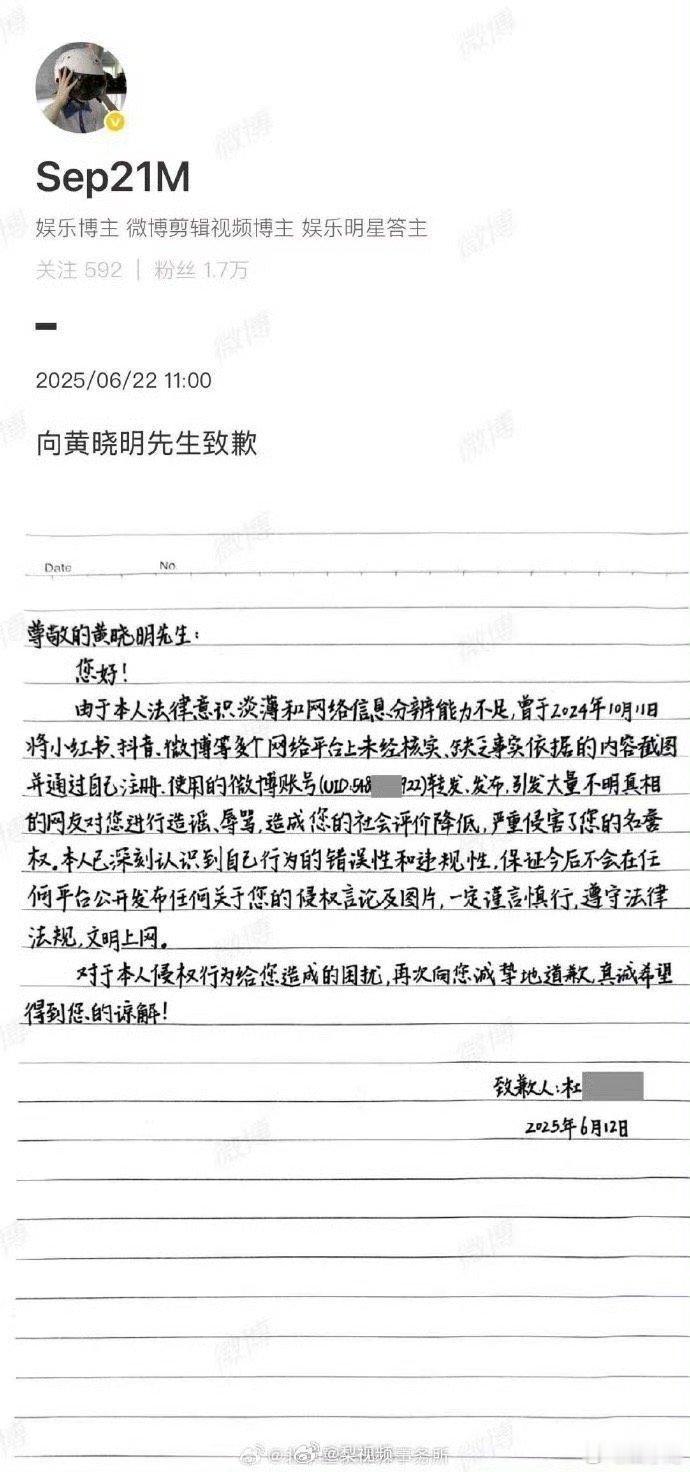 Sep21M
娱乐博主 微博剪辑视频博主 娱乐明星答主
关注 592 | 粉丝 1.7万
2025/06/22 11:00
向黄晓明先生致歉
Date No.
尊敬的黄晓明先生：
您好！
由于本人法律意识淡薄和网络信息分辨能力不足，曾于2024年10月11日
将小红书、抖音、微博等多个网络平台上未经核实、缺乏事实依据的内容截图
并通过自己注册、使用的微博账号(UID:548 922)转发、发布，引发大量不明真相
的网友对您进行造谣、辱骂，造成您的社会评价降低，严重侵害了您的名誉
权。本人已深刻认识到自己行为的错误性和违规性，保证今后不会在任
何平台公开发布任何关于您的侵权言论及图片，一定谨言慎行，遵守法律
法规，文明上网。
对于本人侵权行为给您造成的困扰，再次向您诚挚地道歉，真诚希望
得到您的谅解！
致歉人：杜
2025年6月12日
@梨视频
事务所